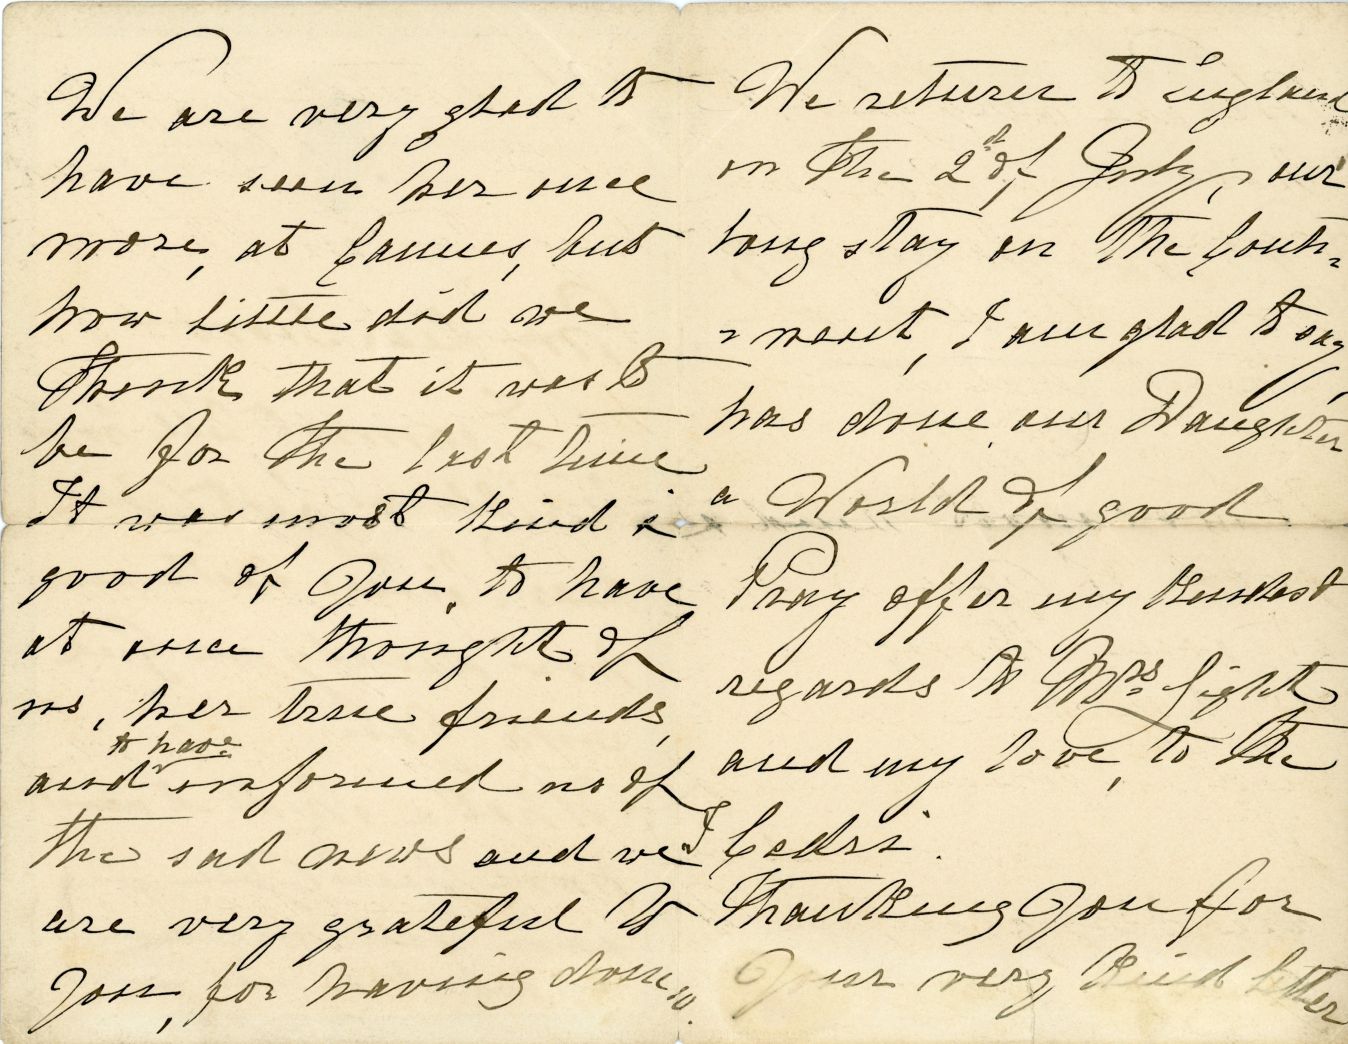 We are very glad to
have seen her once
more, at Cannes, but
how little did we
think that it was to
be for the last time
It was most kind &
good of you, to have
at once thought of
us, her true friends,
to have
and informed us of
the sad news and we
are very grateful to
you, for having done so.
We return to England
on the 2d of July, our
long stay on the Conti=
=nent, I am glad to say,
has done our Daughter
a World of good
Pray offer my kindest
regards to Mrs. Light
and my love, to the
Cedri.
Thanking you for
your very kind letter